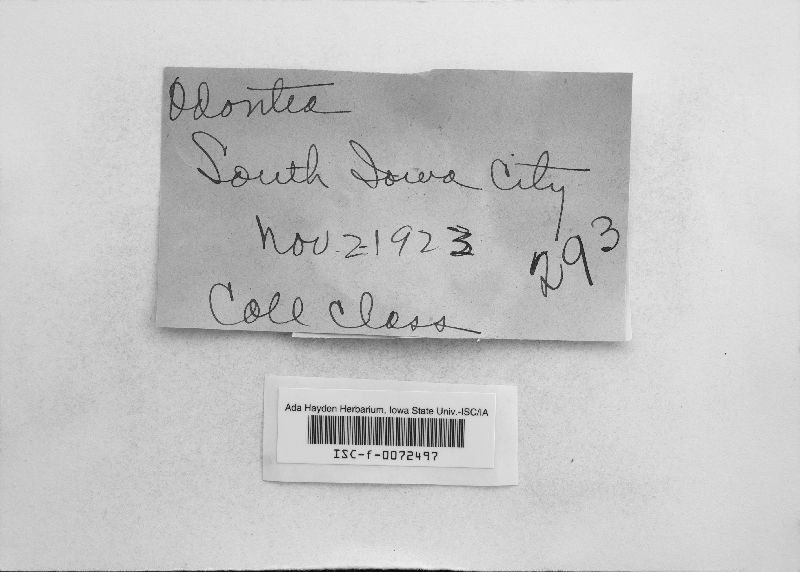 Odontea
South Iowa City
Nov 2 1923
293
Coll Class
Ada Hayden Herbarium, Iowa State Univ.-ISC/IA
ISC-f-0072497